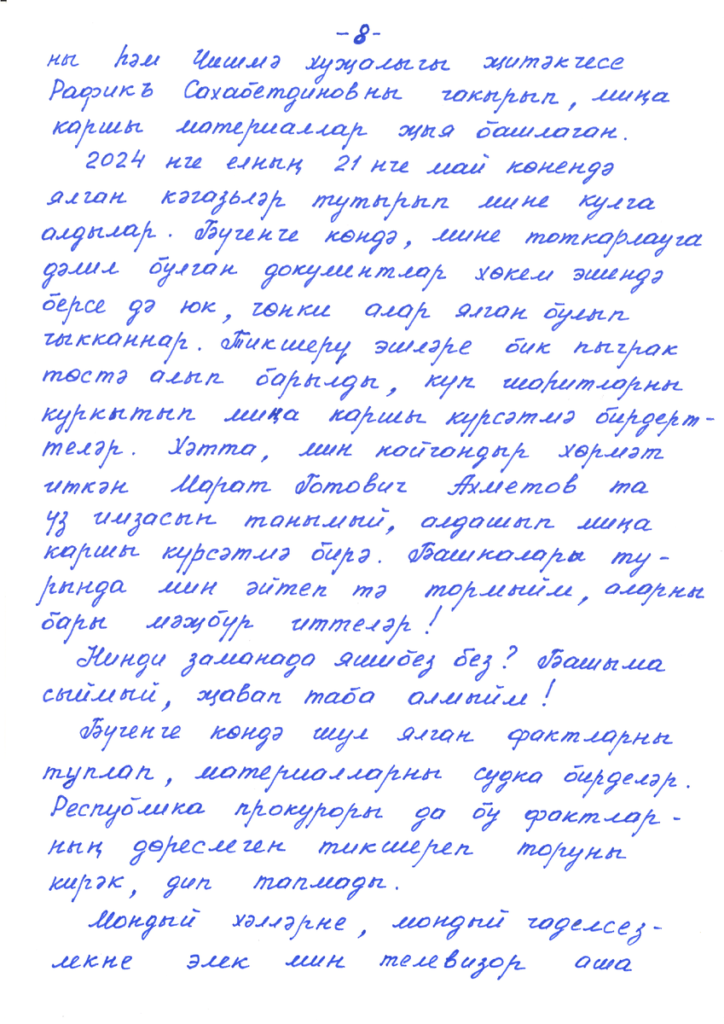 -8-
ны һәм Чишмә хуҗалыгы җитәкчесе
Рафикъ Сахабетдиновны чакырып, миңа
каршы материаллар җыя башлаган.
2024 нче елның 21 нче май көнендә
ялган кәгазьләр тутырып мине кулга
алдылар. Бүгенге көндә, мине тоткарлауга
дәлил булган документлар хөкем эшендә
берсе дә юк, чөнки алар ялган булып
чыкканнар. Тикшерү эшләре бик пычрак
төстә алып барылды, күп шаһитларны
куркытып миңа каршы күрсәтмә бирдерт-
теләр. Хәтта, мин кайчандыр хөрмәт
иткән Марат Готович Ахметов та
үз имзасын танымый, алдашып миңа
каршы күрсәтмә бирә. Башкалары ту-
рында мин әйтеп тә тормыйм, аларны
бары мәҗбүр иттеләр!
Нинди заманада яшибез без? Башыма
сыймый, җавап таба алмыйм!
Бүгенге көндә шул ялган фактларны
туплап, материалларны судка бирделәр.
Республика прокуроры да бу фактлар-
ның дөреслеген тикшереп торуны
кирәк, дип тапмады.
Мондый хәлләрне, мондый гаделсез-
лекне элек мин телевизор аша